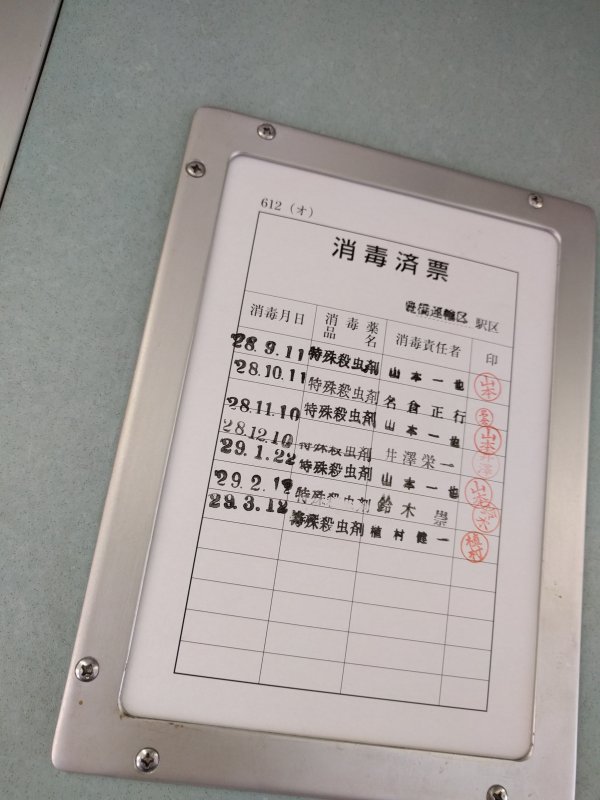 612 (オ)
消毒済票
駅区
消毒月日 消毒薬品名 消毒責任者 印
28.9.11 特殊殺虫剤 山本一也 山本
28.10.11 特殊殺虫剤 名倉正行
28.11.10 特殊殺虫剤 山本一也 山本
28.12.10 特殊殺虫剤 井澤栄一
29.1.22 特殊殺虫剤 山本一也 山本
29.2.12 特殊殺虫剤 鈴木
29.3.12 特殊殺虫剤 植村健一 植村